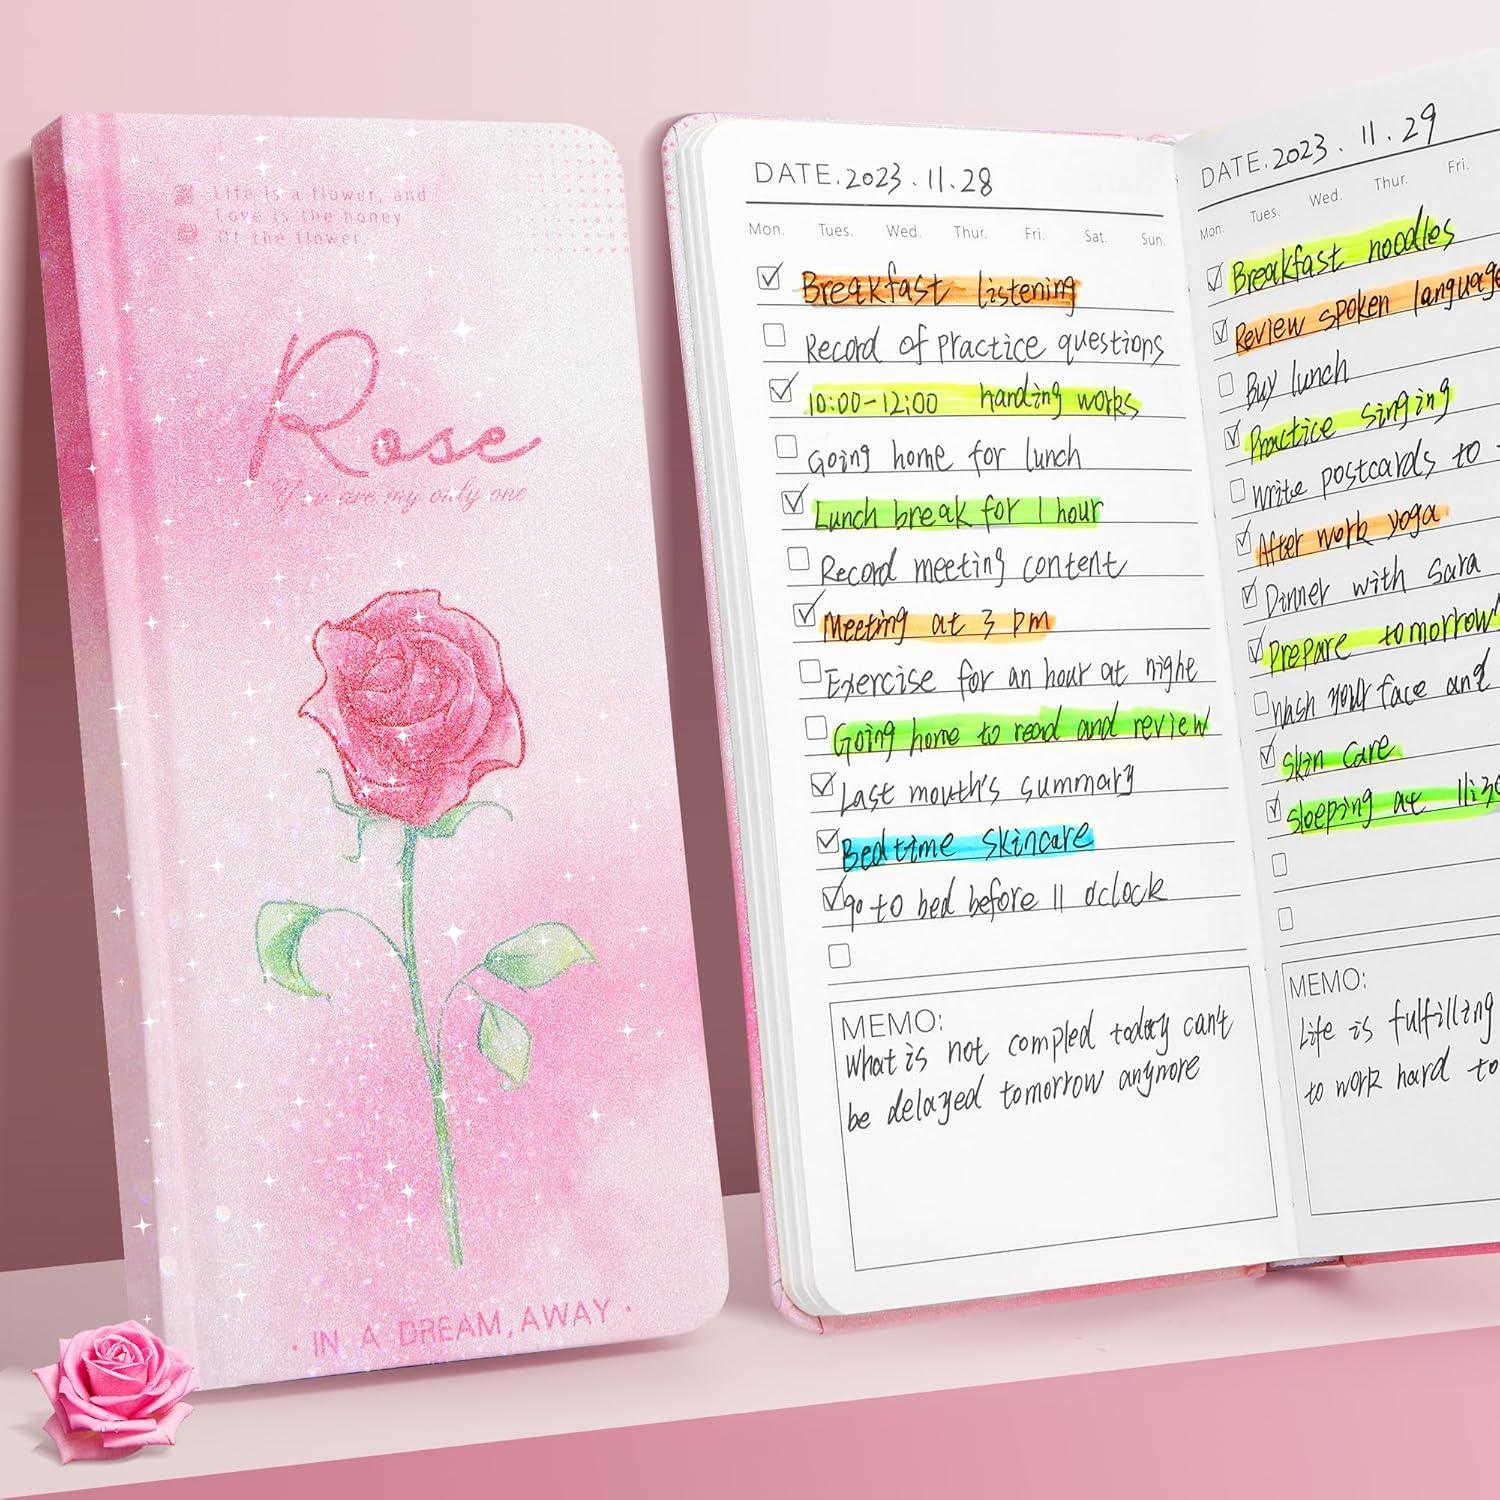 Life is a flower, and
Love is the honey
Of the flower.
Rose
You are my only one
IN A DREAM, AWAY
DATE. 2023.11.28
Mon. Tues. Wed. Thur. Fri. Sat. Sun.
Breakfast listening
Record of practice questions
10:00-12:00 handing works
Going home for lunch
Lunch break for 1 hour
Record meeting content
Meeting at 3 pm
Exercise for an hour at nighe
Going home to read and review
Last mouth's summary
Bedtime skincare
go to bed before 11 o'clock
MEMO:
What is not compled today can't
be delayed tomorrow anymore
DATE. 2023.11.29
Mon. Tues. Wed. Thur. Fri.
Breakfast noodles
Review spoken language
Buy lunch
Practice singing
Write postcards to
After work yoga
Dinner with Sara
Prepare tomorrow'
Wash your face and
Skin care
Sleeping at
MEMO:
Life is fulfilling
to work hard to